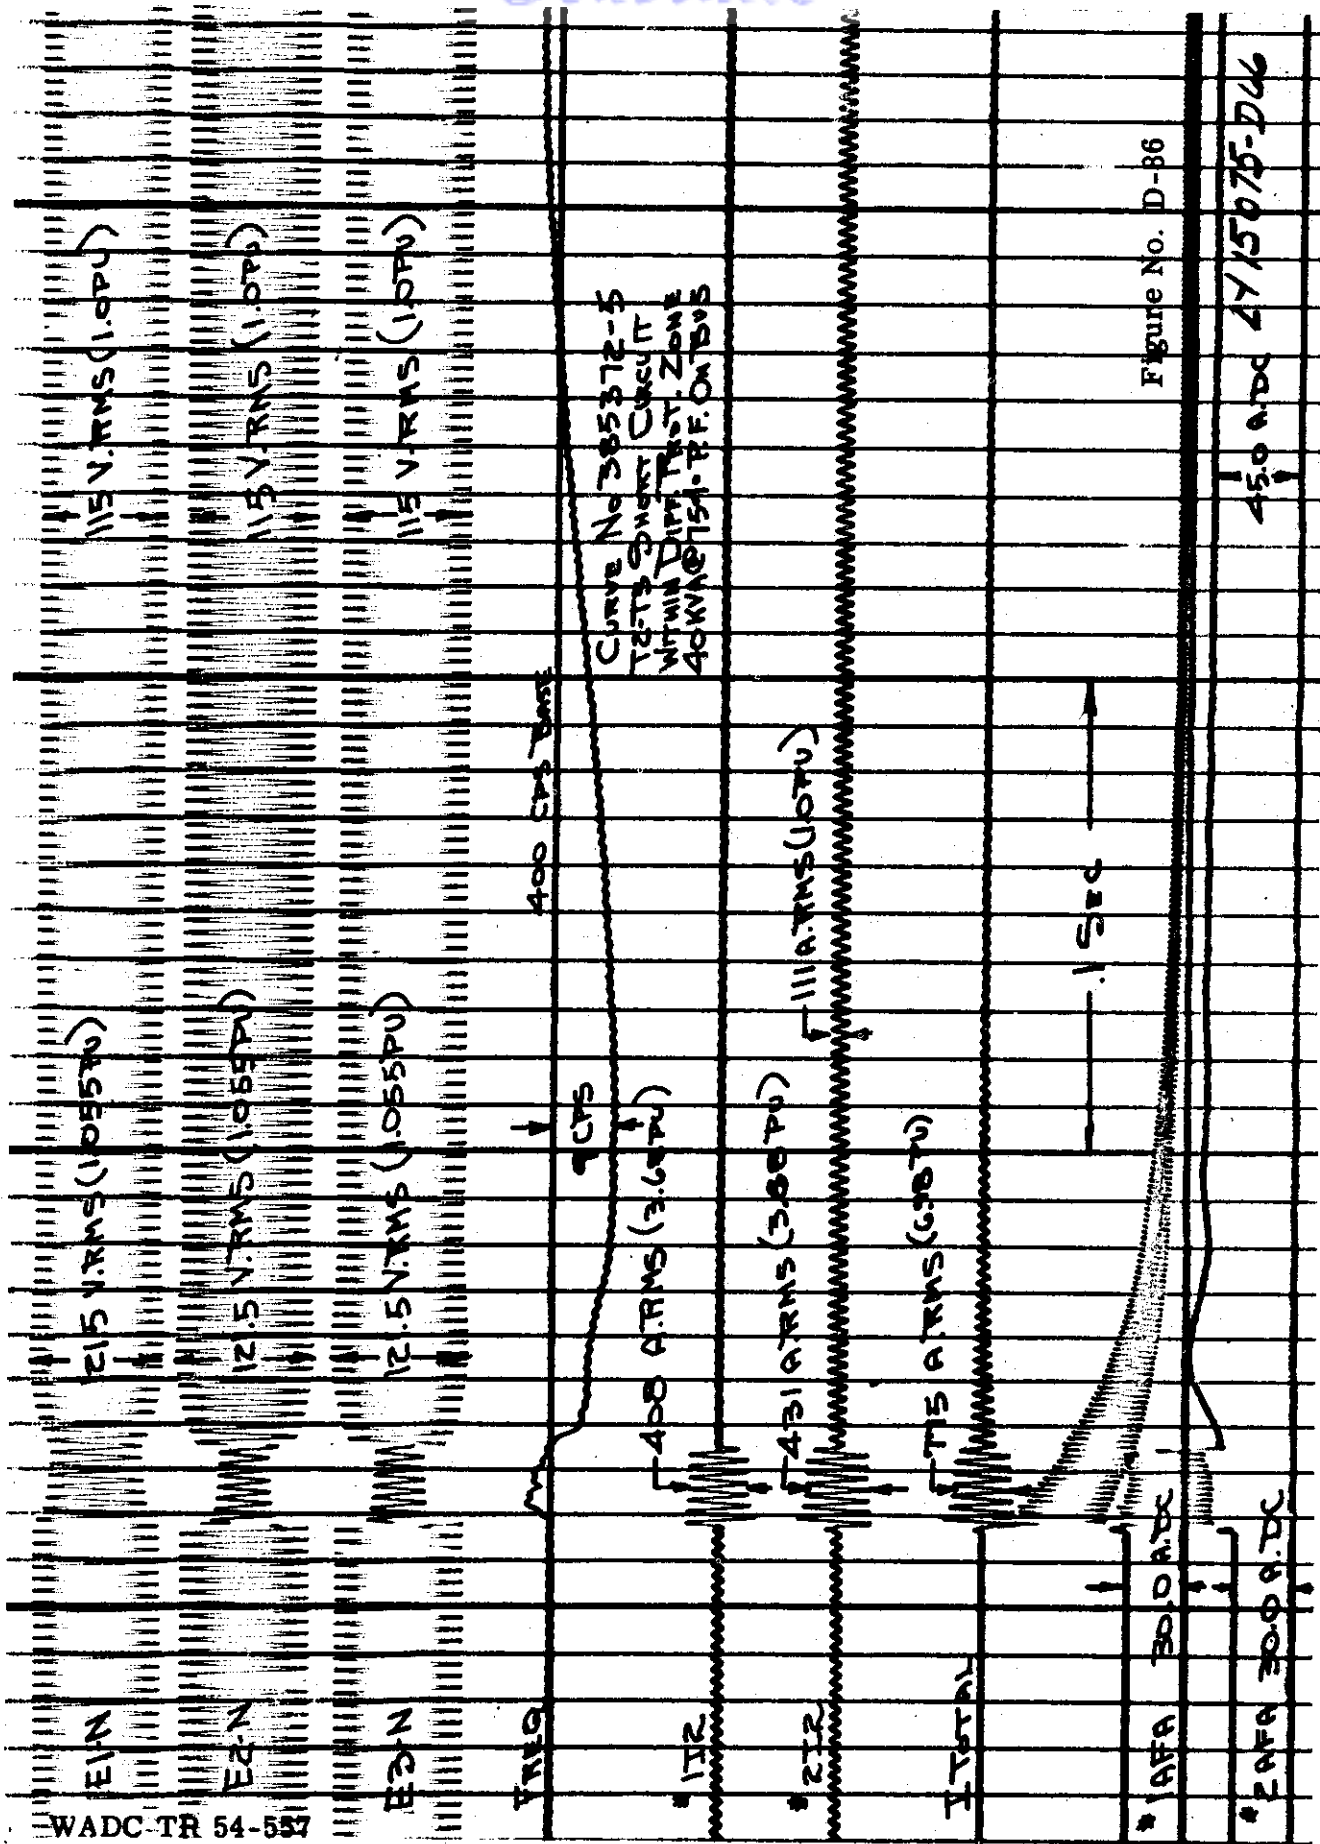 E1-N
121.5 V. RMS (1.055PU)
115 V. RMS (1.0PU)
E2-N
121.5 V. RMS (1.055PU)
115 V. RMS (1.0PU)
E3-N
121.5 V. RMS (1.055PU)
115 V. RMS (1.0PU)
FREQ
CPS
400 CPS BASE
CURVE No 385372-5
T2-T3 SHORT CIRCUIT
WITHIN DIFF. PROT. ZONE
40 KVA @ .75 P.F. ON BUS
#1T2
408 A.RMS (3.68 PU)
#2T2
431 A.RMS (3.88 PU)
111 A.RMS (1.0PU)
I TOTAL
775 A RMS (6.98 PU)
.1 SEC
#1 AFA 30.0 A.DC
Figure No. D-86
#2 AFA 30.0 A.DC
45.0 A.DC
WADC TR 54-557